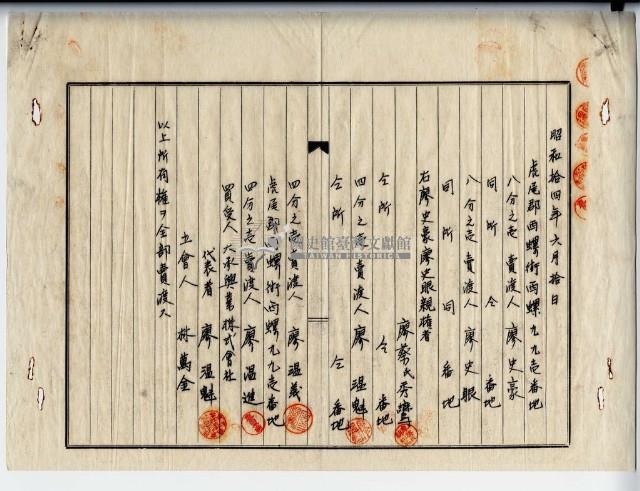 昭和拾四年六月拾日
虎尾郡西螺街西螺九九壱番地
八分之壱 賣渡人 廖史豪
同所 仝番地
八分之壱 賣渡人 廖史眼
同所 同番地
右廖史豪廖史眼親権者
廖蔡氏秀鸞
仝所 仝番地
四分之壱 賣渡人 廖温魁
仝所 仝番地
四分之壱 賣渡人 廖温義
虎尾郡西螺街西螺九九壱番地
四分之壱 賣渡人 廖温進
買受人 大承興業株式會社
代表者 廖温魁
立會人 林萬金
以上所有権ヲ全部賣渡ス
國史館臺灣文獻館
TAIWAN HISTORICA